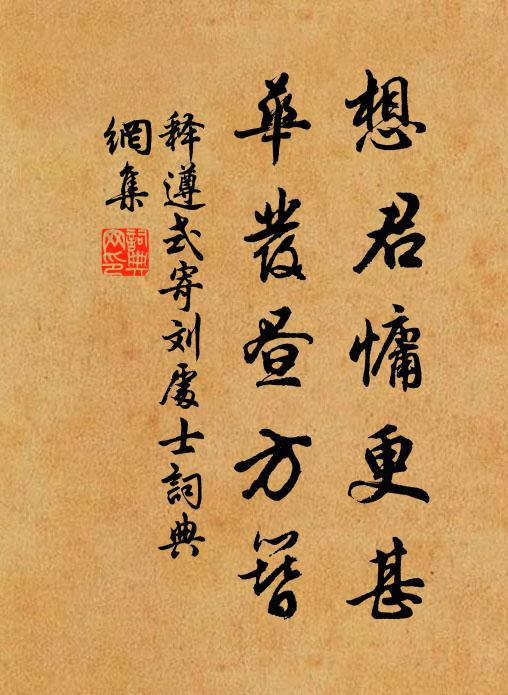 想君慵更甚
華發昼方簪
释遵式寄刘處士詞典
網集
詞典
网印